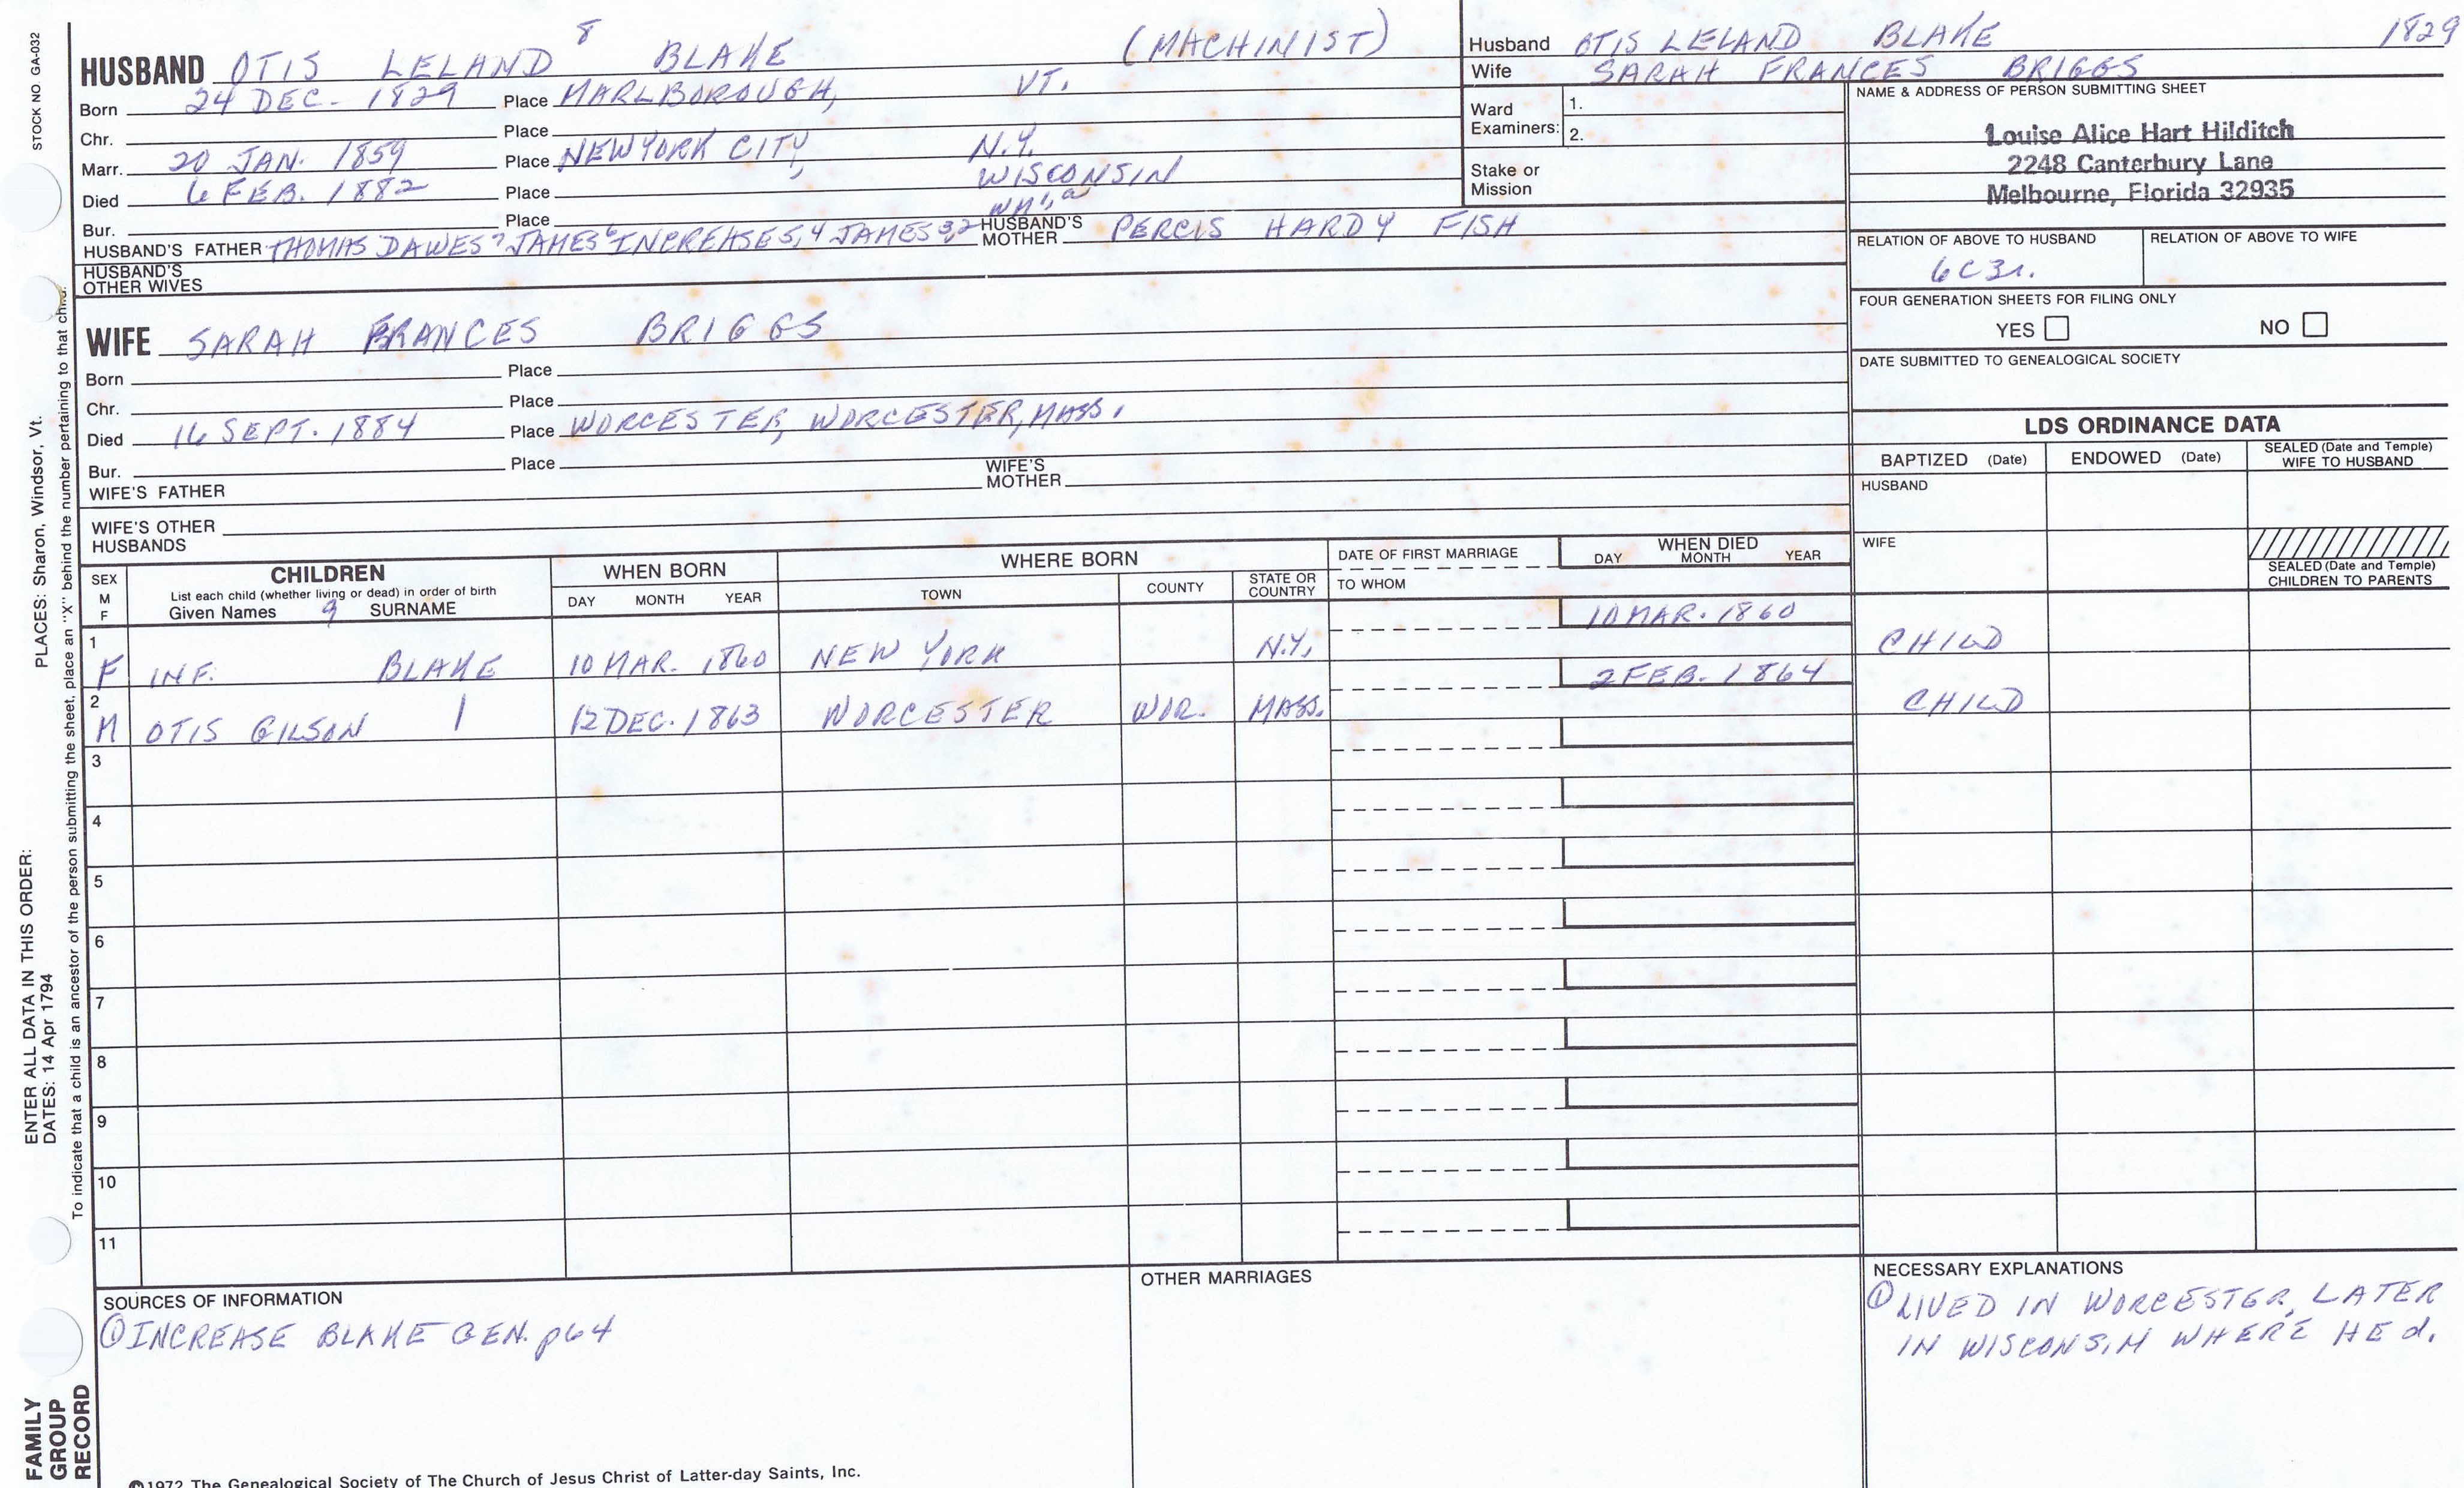 STOCK NO. GA-032
HUSBAND OTIS LELAND 8 BLAKE (MACHINIST)
Born 24 DEC. 1829 Place MARLBOROUGH, VT.
Chr. Place
Marr. 20 JAN. 1859 Place NEW YORK CITY, N.Y.
Died 6 FEB. 1882 Place WISCONSIN
Bur. Place
HUSBAND'S FATHER THOMAS DAWES 7 JAMES 6 INCREASE 5,4 JAMES 3,2 WM 1, a HUSBAND'S MOTHER PERCIS HARDY FISH
HUSBAND'S OTHER WIVES
WIFE SARAH FRANCES BRIGGS
Born Place
Chr. Place
Died 16 SEPT. 1884 Place WORCESTER, WORCESTER, MASS.
Bur. Place
WIFE'S FATHER WIFE'S MOTHER
WIFE'S OTHER HUSBANDS
Husband OTIS LELAND BLAKE 1829
Wife SARAH FRANCES BRIGGS
Ward Examiners: 1.
2.
Stake or Mission
NAME & ADDRESS OF PERSON SUBMITTING SHEET
Louise Alice Hart Hilditch
2248 Canterbury Lane
Melbourne, Florida 32935
RELATION OF ABOVE TO HUSBAND RELATION OF ABOVE TO WIFE
6C3r.
FOUR GENERATION SHEETS FOR FILING ONLY
YES NO
DATE SUBMITTED TO GENEALOGICAL SOCIETY
LDS ORDINANCE DATA
BAPTIZED (Date) ENDOWED (Date) SEALED (Date and Temple) WIFE TO HUSBAND
HUSBAND
WIFE
SEALED (Date and Temple) CHILDREN TO PARENTS
SEX M F
CHILDREN
List each child (whether living or dead) in order of birth
Given Names 9 SURNAME
WHEN BORN
DAY MONTH YEAR
WHERE BORN
TOWN COUNTY STATE OR COUNTRY
DATE OF FIRST MARRIAGE
TO WHOM
WHEN DIED
DAY MONTH YEAR
1 F INF. BLAKE 10 MAR. 1860 NEW YORK N.Y. 10 MAR. 1860 CHILD
2 M OTIS GILSON | 12 DEC. 1863 WORCESTER WOR. MASS. 2 FEB. 1864 CHILD
3
4
5
6
7
8
9
10
11
SOURCES OF INFORMATION
① INCREASE BLAKE GEN. p64
OTHER MARRIAGES
NECESSARY EXPLANATIONS
① LIVED IN WORCESTER, LATER
IN WISCONSIN WHERE HE d.
©1972 The Genealogical Society of The Church of Jesus Christ of Latter-day Saints, Inc.
FAMILY GROUP RECORD
ENTER ALL DATA IN THIS ORDER:
DATES: 14 Apr 1794
PLACES: Sharon, Windsor, Vt.
To indicate that a child is an ancestor of the person submitting the sheet, place an "X" behind the number pertaining to that child.